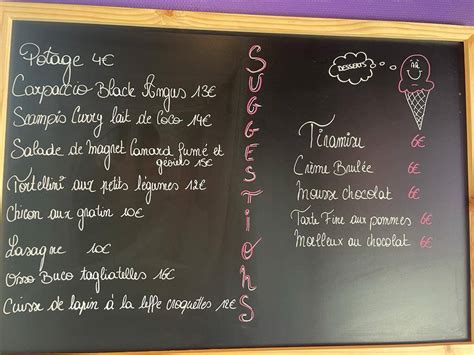 Potage 4€
Carpaccio Black Angus 13€
Scampis Curry lait de Coco 14€
Salade de magret Canard fumé et
gésiers 15€
Tortellini aux petits légumes 12€
Chicon aux gratin 10€
Lasagne 10€
Osso Buco tagliatelles 16€
Cuisse de lapin à la leffe croquettes 12€
SUGGESTIONS
DESSERTS
Tiramisu 6€
Crème Brulée 6€
Mousse chocolat 6€
Tarte Fine aux pommes 6€
Moelleux au chocolat 6€